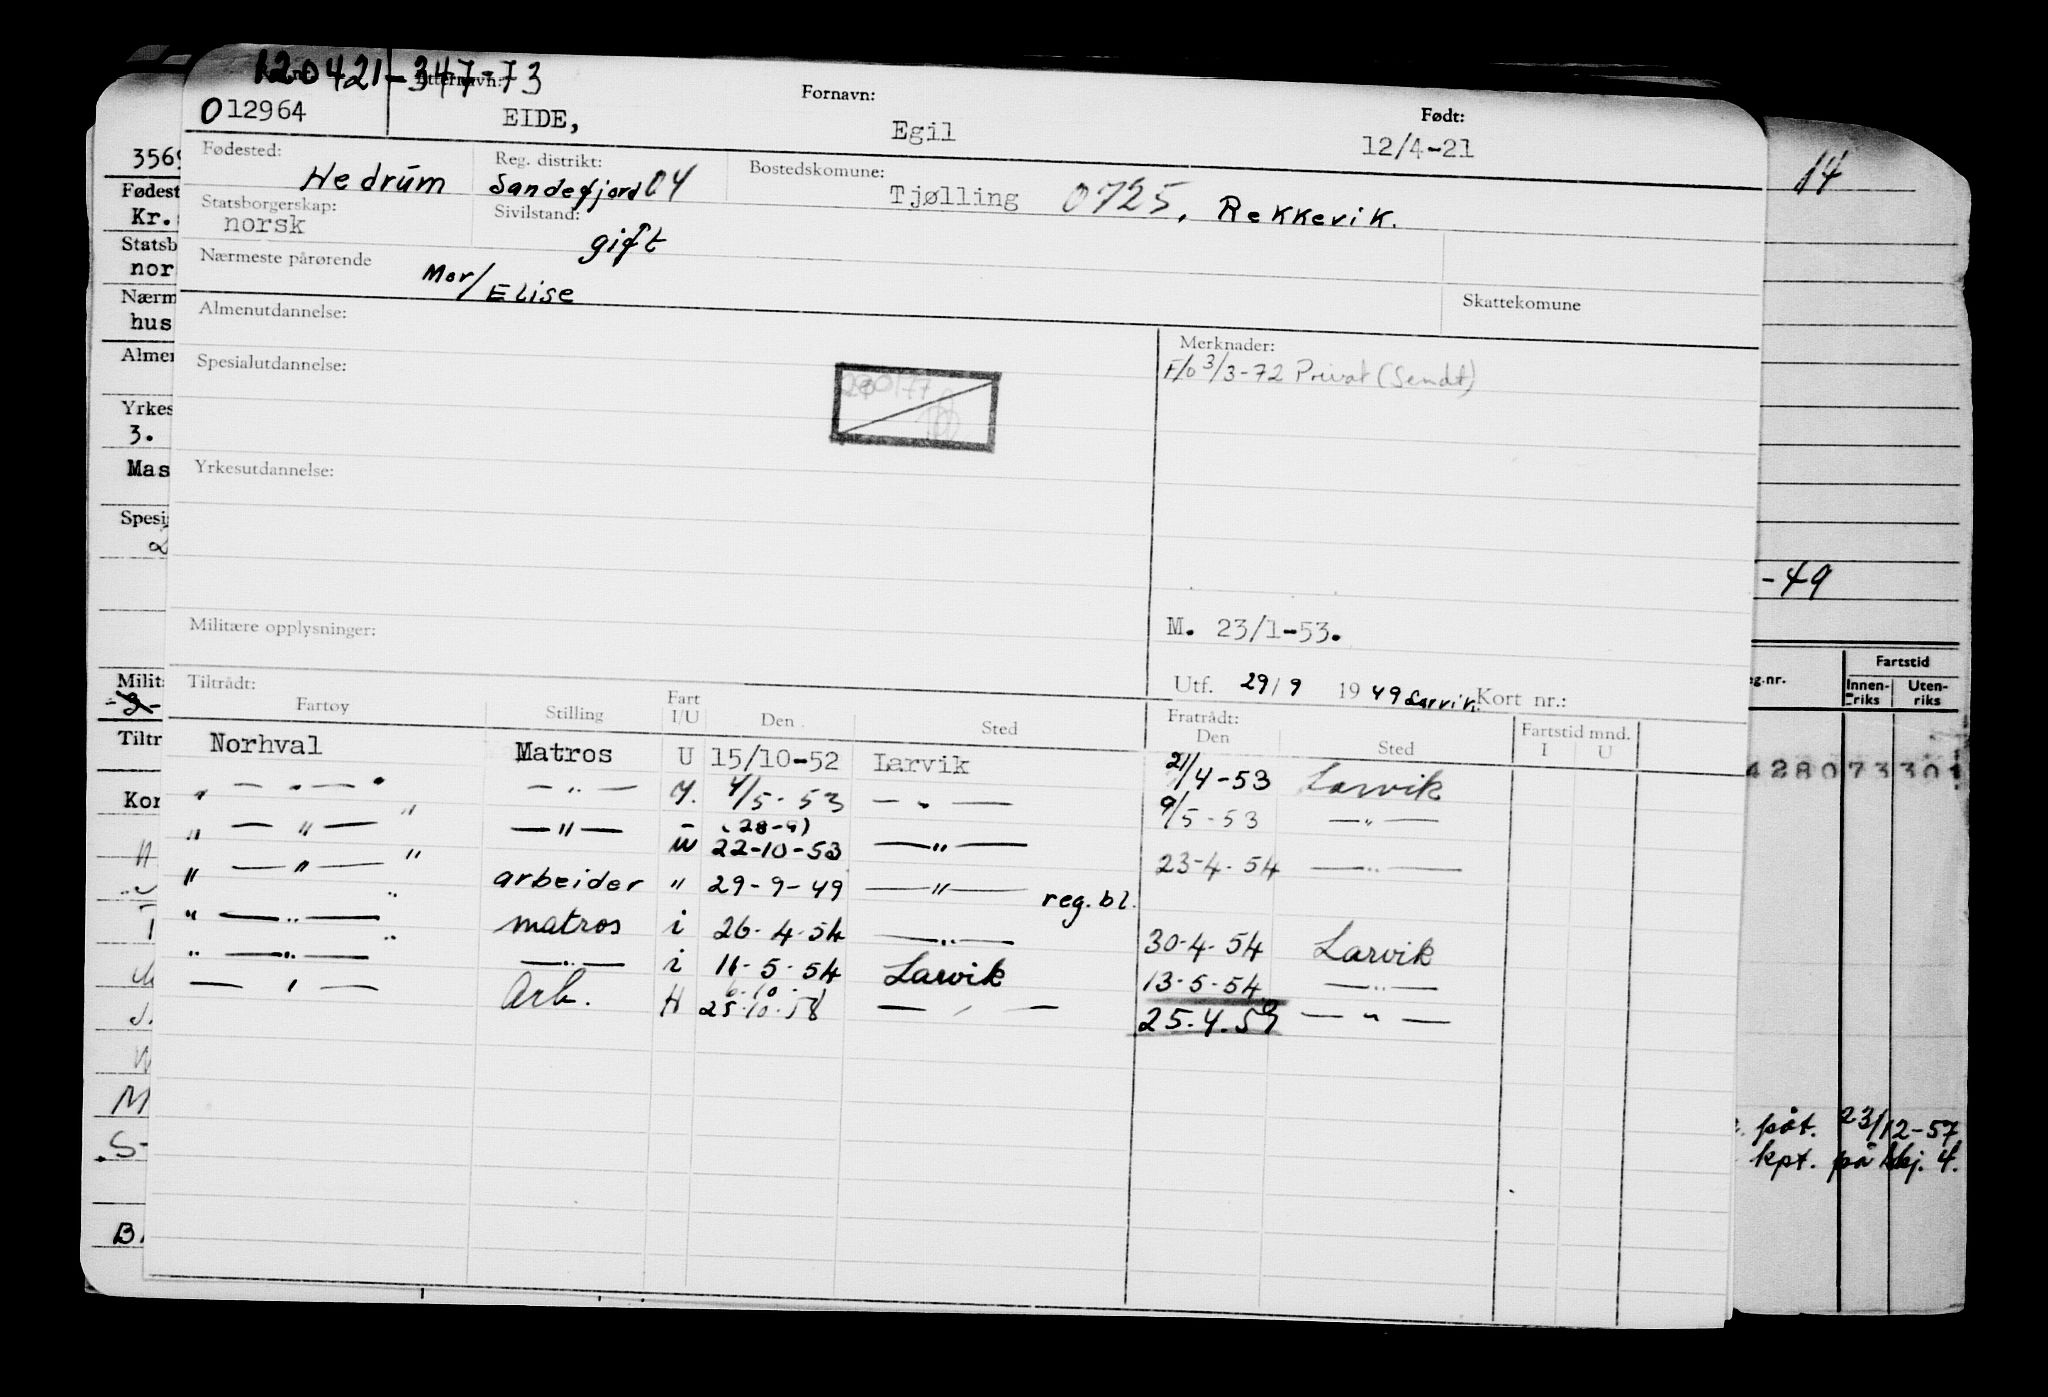 120421-347-73
012964 Etternavn: EIDE, Fornavn: Egil Født: 12/4-21
Fødested: Hedrum Reg. distrikt: Sandefjord 04 Bostedskomune: Tjølling 0725, Rekkevik.
Statsborgerskap: norsk Sivilstand: gift
Nærmeste pårørende Mor/Elise Skattekomune
Almenutdannelse: Merknader:
F/o 3/3-72 Privat (Sendt)
Spesialutdannelse:
Yrkesutdannelse:
Militære opplysninger: M. 23/1-53.
Utf. 29/9 1949 Larvik. Kort nr.:
Tiltrådt: Fratrådt: Fartstid mnd.
Fartøy Stilling Fart I/U Den Sted Den Sted I U
Norhval Matros U 15/10-52 Larvik 21/4-53 Larvik
" — " — " — " — 4/5-53 — " — 9/5-53 — " —
" — " — " — " — (28-9)
U 22-10-53 — " — 23-4-54 — " —
" — " — " arbeider " 29-9-49 — " — reg.bl.
" — " — " matros i 26-4-54 — " — 30-4-54 Larvik
" — " — " — " — i 11-5-54 Larvik 13-5-54 — " —
— " — Arb. H 25.10.58 — " — 25.4.59 — " —
3569
Fødest
Kr.
Statsb
nor
Nærm
hus
Almen
Yrkes
3.
Mas
Spesi
Milit
Tiltr
Kor
14
-49
Fartstid
g.nr. Innenriks Utenriks
4280 73 301
påt. 23/12-57
kpt. på